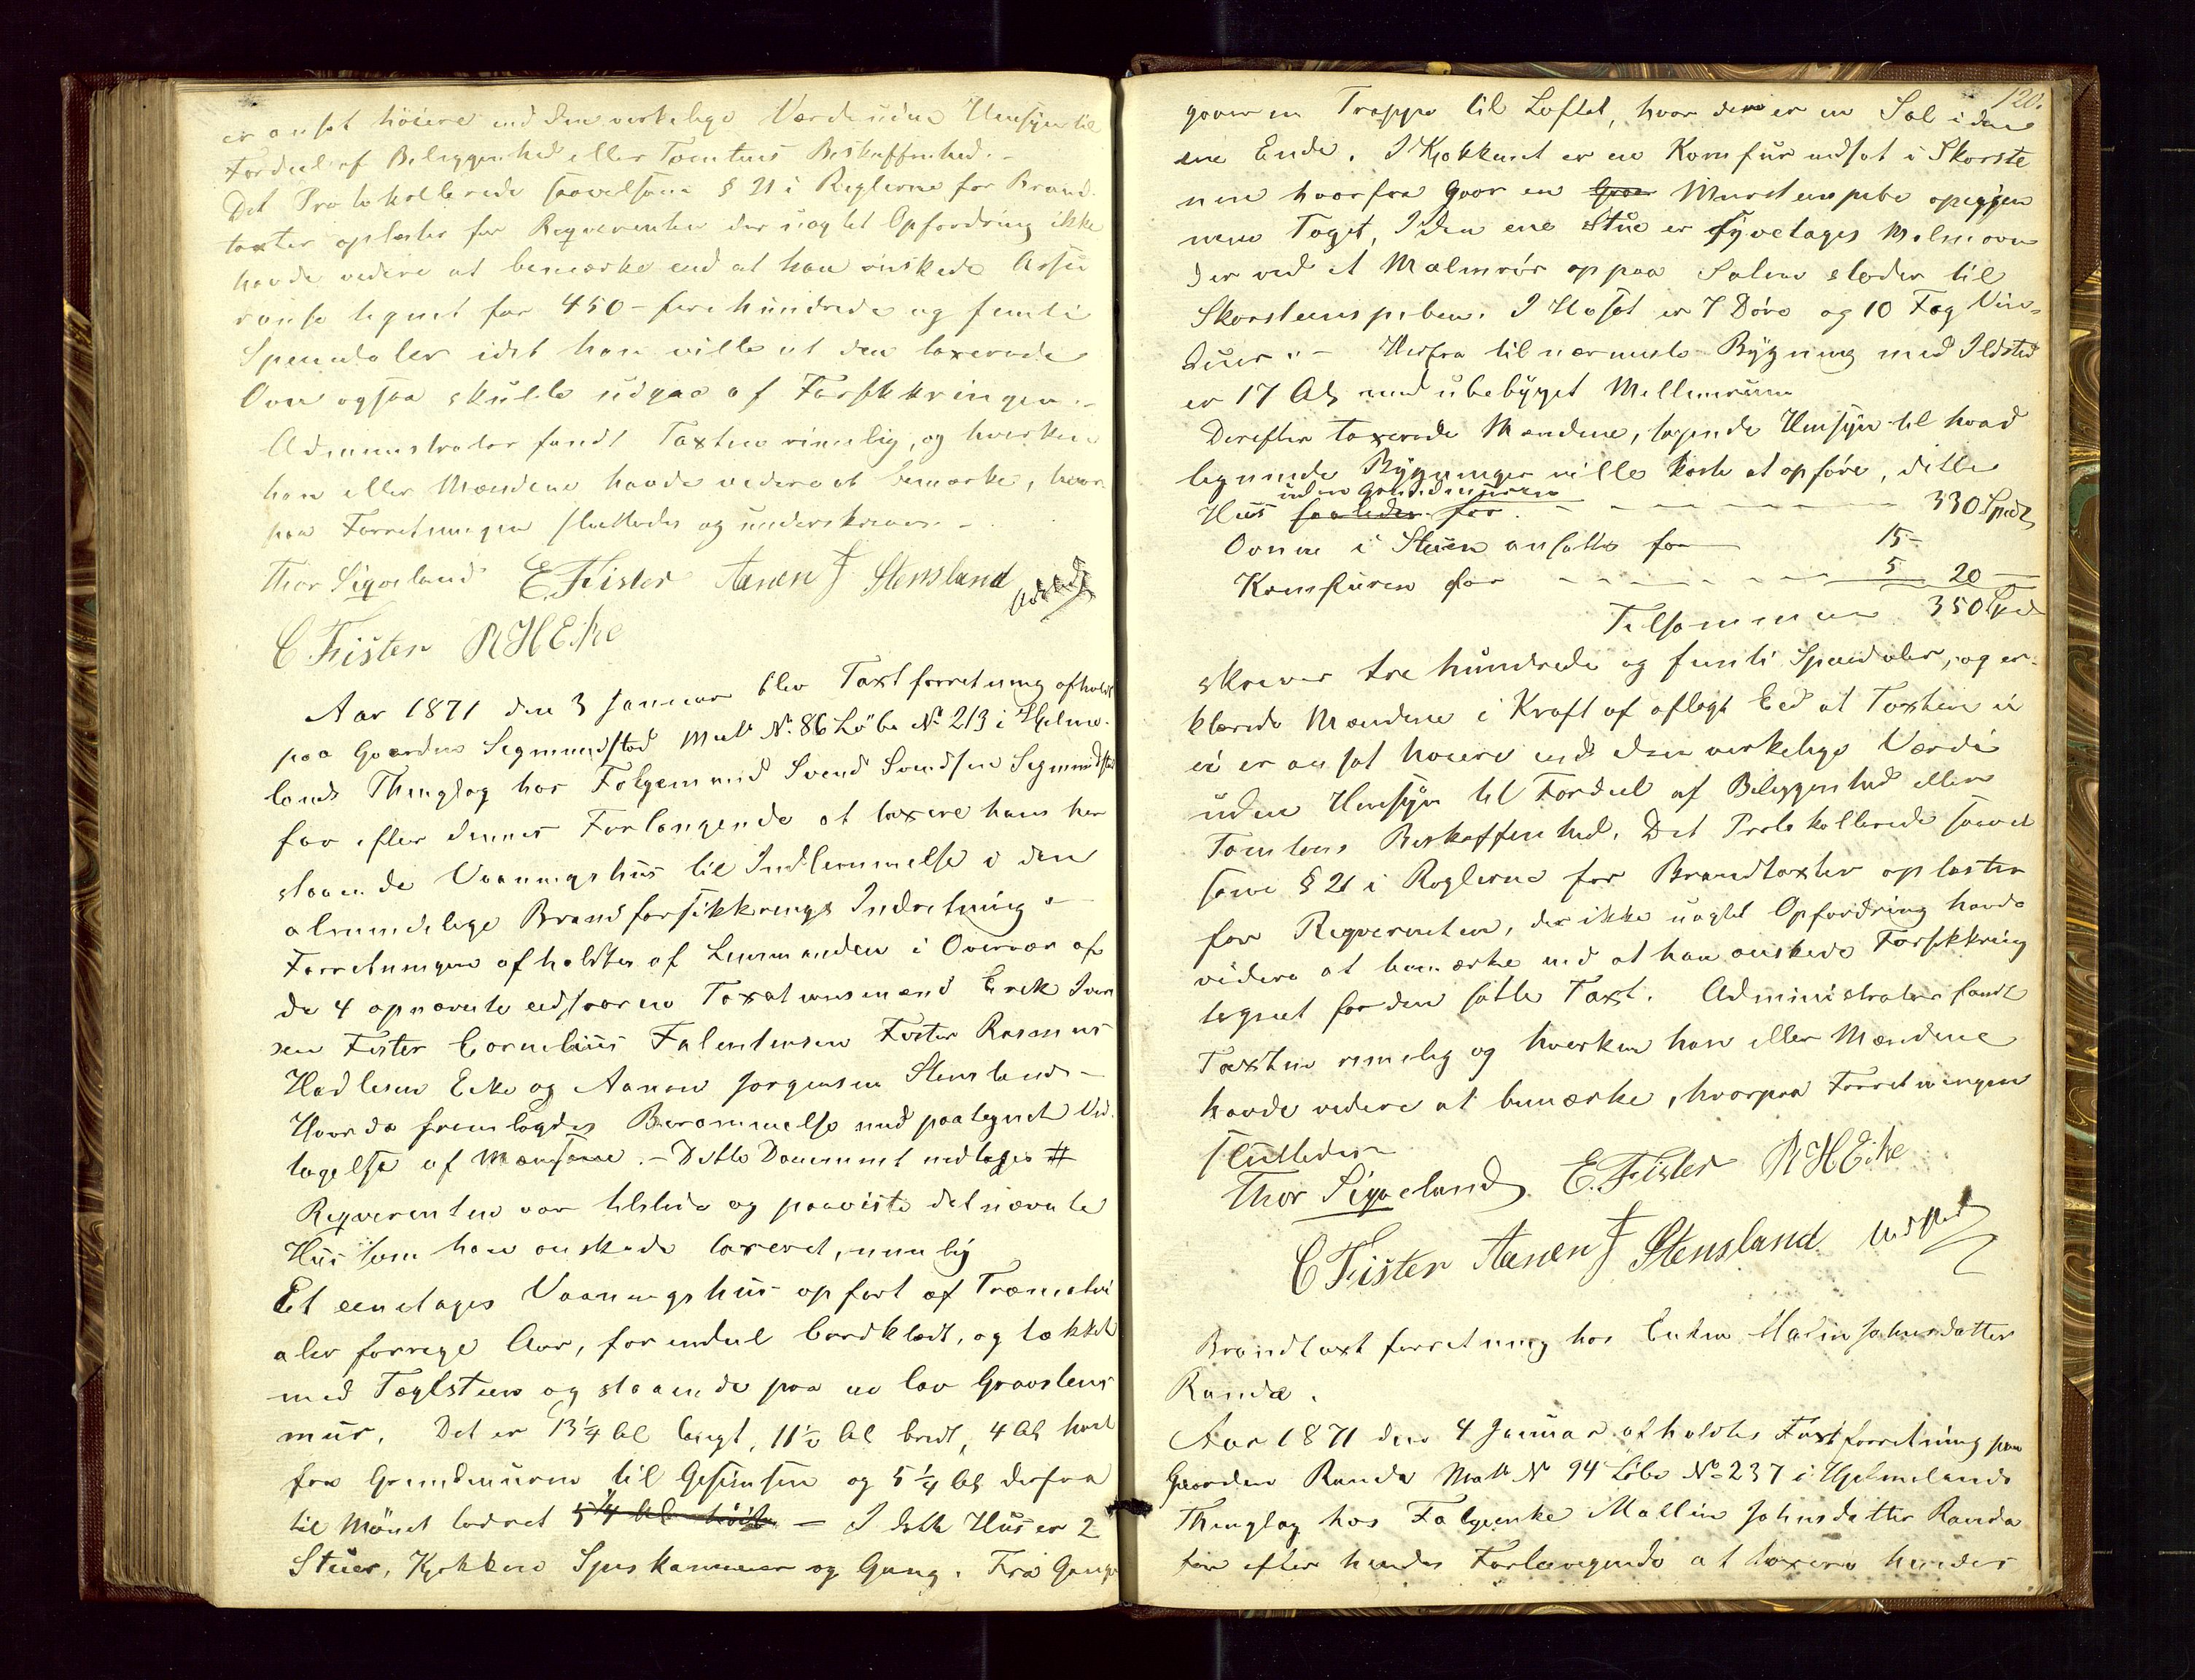 er ansat höiere end den verkelige Værde uden Hensyn til
Fordeel af Beliggenhed eller Tomtens Beskaffenhed. -
Det Protokollerede saavelsom § 21 i Reglerne for Brand-
taxter oplæstes for Reqverenten der uagtet Opfordring ikke
havde videre at bemærke end at han önskede Assu
ranse tegnet for 450 - fire hundrede og femti
Speciedaler idet han ville at den taxerede
Ovn ogsaa skulle udgaa af Forsikkringen. -
Administrator fandt Taxten rimelig, og hverken
han eller Mændene havde videre at bemærke, hvor
paa Forretningen sluttedes og underskreves. -
Thor Sigveland E. Fister Aanen J Stensland
C Fister R H Eike
Aar 1871 den 3 Januar blev Taxtforretning afholdt
paa Gaarden Segmundstad Matr. No. 86 Löbe No 213 i Hjelme-
lands Thinglag hos Følgemand Svend Svendsen Segmundstad
for efter dennes Forlangende at taxere hans her
staaende Vaaningshus til Indlemmelse i den
almindelige Brandforsikkrings Indretning. -
Forretningen afholdtes af Lensmanden i Overvær af
de 4 opnævnte edsvorne Taxationsmænd Erik Iver
sen Fister Cornelius Falentinsen Fister Rasmus
Hadlesen Eike og Aanen Jorgensen Stensland -
Hvor da fremlagdes Berammelse med paategnet Ved-
tagelse af Mændene. - Dette Document medtages #
Reqverenten var tilstede og paaviste det nævnte
Hus som han onskede taxeret, nemlig
Et eenetages Vaaningshus opfort af Træmateri
aler forrige Aar, forendeel bordklædt, og tækket
med Tæglsteen og staaende paa en lav Graasteens
mur. Det er 13 1/4 Al langt, 11 1/2 Al bredt, 4 Al höit
fra Grundmuren til Gesimsen og 5 1/4 Al derfra
til Mönet lodret 5 1/4 Al höit - I dette Hus er 2
Stuer, Kjokken Spiskammer og Gang. Fra Gange
120.
gaar en Trappe til Loftet, hvor der er en Sal i den
ene Ende. I Kjøkkenet er en Komfur indsat i Skorste
nen hvorfra gaar en Gaar Murstenspibe opigjen
nem Taget, I den ene Stue er tyvetages Malmovn
der ved et Malmrör op paa Salen stöder til
Skorsteenspiben. I Huset er 7 Döre og 10 Fag Vin-
duer. - Herfra til nærmeste Bygning med Ildsted
er 17 Al med ubebygget Mellemrum
Derefter taxerede Mændene, tagende Hensyn til hvad
lignende Bygninger ville koste at opføre, dette
uden Grundmuren
Hus saaledes for - - - 330 Spd
Ovnen i Stuen ansattes for 15 -
Komfuren for - - - 5 20 -
Tilsammen 350 Spd
skriver tre hundrede og femti Speciedaler, og er-
klærede Mændene i Kraft af aflagt Eed at Taxten ei
ei er ansat höiere end den verkelige Værdi
uden Hensyn til Fordeel af Beliggenhed eller
Tomtens Beskaffenhed. Det Protokollerede saavel
som § 21 i Reglerne for Brandtaxter oplæstes
for Reqverenten, der ikke uagtet Opfordring havde
videre at bemærke end at han onskede Forsikkring
tegnet for den satte Taxt. Administrator fandt
Taxten rimelig og hverken han eller Mændene
havde videre at bemærke, hvorpaa Forretningen
sluttedes
Thor Sigveland E. Fister R H Eike
C Fister Aanen J Stensland Udsted
Brandtaxtforretning hos Enken Malin Johnsdatter
Randa.
Aar 1871 den 4 Januar afholdtes Taxtforretning paa
Gaarden Randa Matr No 94 Löbe No 237 i Hjelmelands
Thinglag hos Følgeenke Mallin Johnsdatter Randa
for efter hendes Forlangende at taxere hendes